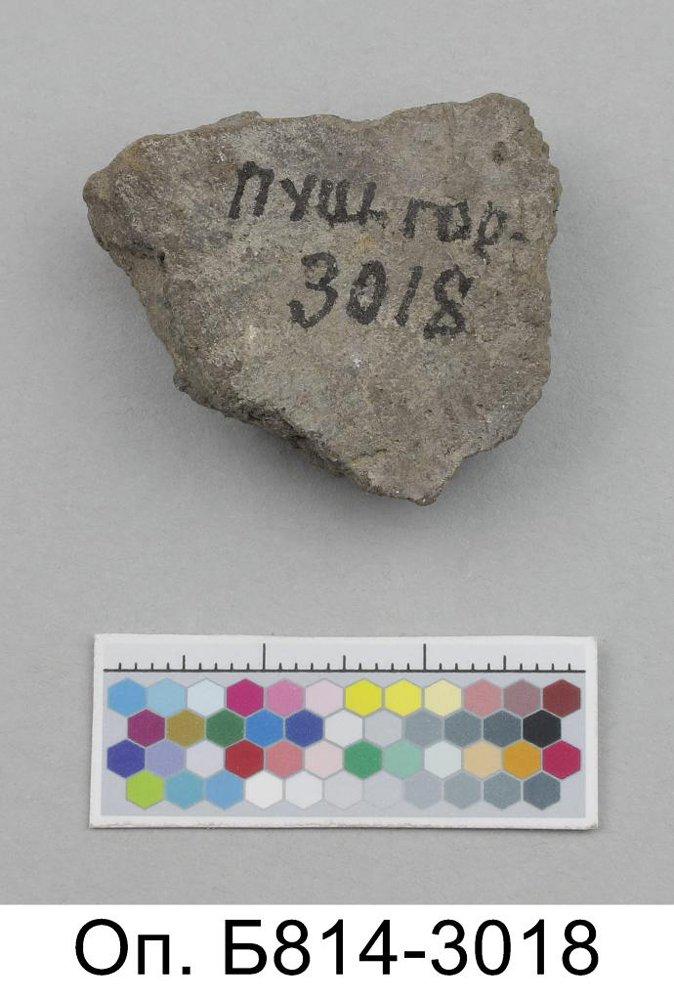 пуш. гор.
3018
Оп. Б814-3018